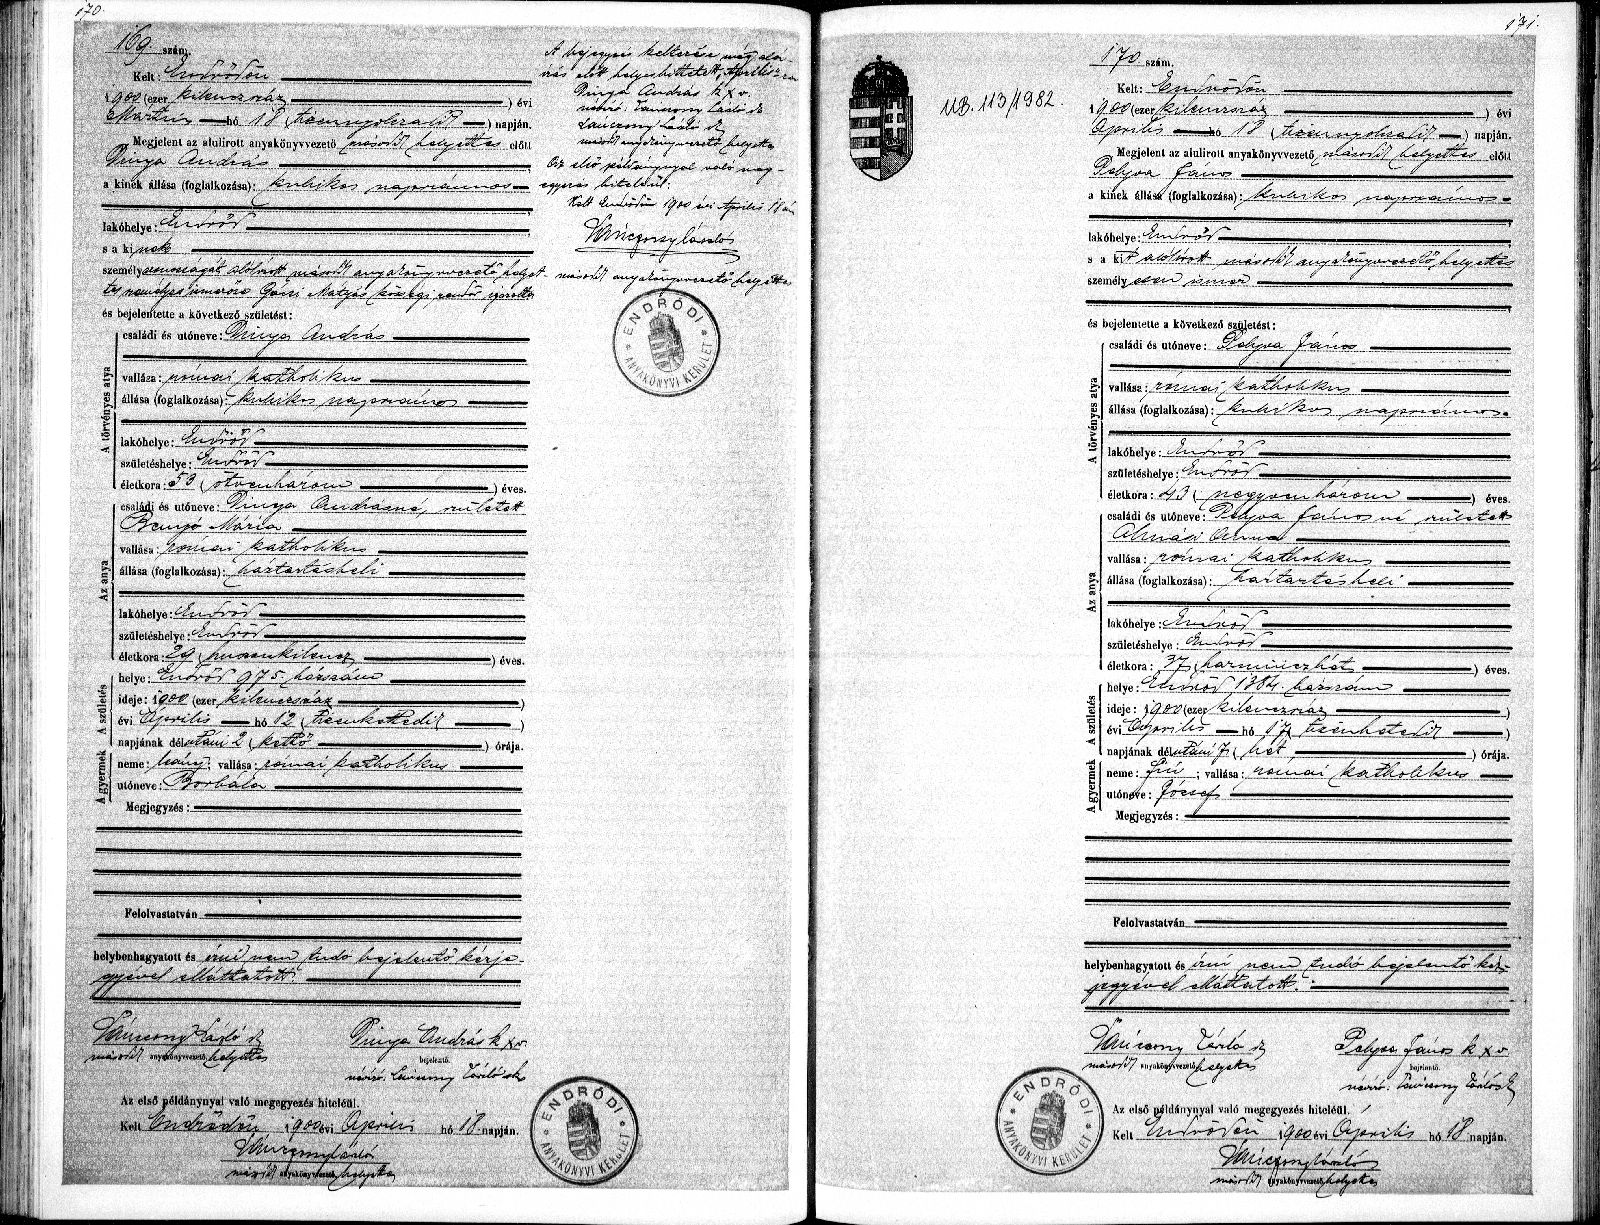 170.
169. szám.
Kelt: Endrődön
1900 (ezer kilenczszáz ) évi
Martius hó 18 (tizennyolczadik ) napján.
Megjelent az alulirott anyakönyvvezető másodk helyettes előtt
Dinya András
a kinek állása (foglalkozása): kubikos napszámos
lakóhelye: Endrőd
s a ki nek
személyazonosságát alólírott másodk anyakönyvvezető helyet
tes személyes ismerőse Gácsi Mátyás községi rendőr igazolta
és bejelentette a következő születést:
A törvényes atya
családi és utóneve: Dinya András
vallása: római katholikus
állása (foglalkozása): kubikos napszámos
lakóhelye: Endrőd
születéshelye: Endrőd
életkora: 53 (ötvenhárom ) éves.
Az anya
családi és utóneve: Dinya Andrásné, született
Benyó Mária
vallása: római katholikus
állása (foglalkozása): háztartásbeli
lakóhelye: Endrőd
születéshelye: Endrőd
életkora: 29 (huszonkilencz ) éves.
A születés
helye: Endrőd 975 házszám
ideje: 1900 (ezer kilenczszáz )
évi Április hó 12 (tizenkettedik )
napjának délutáni 2 (kettő ) órája.
A gyermek
neme: leány; vallása: római katholikus
utóneve: Borbála
Megjegyzés:
Felolvastatván
helybenhagyatott és írni nem tudó bejelentő kézje-
gyével elláttatott.
Lánczony László
másodk anyakönyvvezető helyettes
Dinya András k x v.
bejelentő.
névíró: Lánczony László
Az első példánynyal való megegyezés hiteléül.
Kelt Endrődön 1900 évi Április hó 18 napján.
Lánczony László
másodk anyakönyvvezető helyettes
ENDRŐDI ANYAKÖNYVI KERÜLET
A bejegyzés keltezése még alá-
írás előtt helyesbíttetett, Április
Dinya András k x v.
névíró: Lánczony László
Lánczony László
másodk anyakönyvvezető helyettes
Az első példánynyal való meg-
egyezés hiteléül.
Kelt Endrődön 1900 évi Április 18 án
Lánczony László
másodk anyakönyvvezető helyettes
ENDRŐDI ANYAKÖNYVI KERÜLET
171.
UB. 113/1982.
170. szám.
Kelt: Endrődön
1900 (ezer kilenczszáz ) évi
Április hó 18 (tizennyolczadik ) napján.
Megjelent az alulirott anyakönyvvezető másodk helyettes előtt
Pelyva János
a kinek állása (foglalkozása): kubikos napszámos
lakóhelye: Endrőd
s a kit alólírott másodk anyakönyvvezető helyettes
személyesen ismer
és bejelentette a következő születést:
A törvényes atya
családi és utóneve: Pelyva János
vallása: római katholikus
állása (foglalkozása): kubikos napszámos
lakóhelye: Endrőd
születéshelye: Endrőd
életkora: 43 (negyvenhárom ) éves.
Az anya
családi és utóneve: Pelyva Jánosné született
Almási Anna
vallása: római katholikus
állása (foglalkozása): háztartásbeli
lakóhelye: Endrőd
születéshelye: Endrőd
életkora: 37 (harminczhét ) éves.
A születés
helye: Endrőd házszám
ideje: 1900 (ezer kilenczszáz )
évi Április hó 17 (tizenhetedik )
napjának délutáni 7 (hét ) órája.
A gyermek
neme: fiú; vallása: római katholikus
utóneve: József
Megjegyzés:
Felolvastatván
helybenhagyatott és írni nem tudó bejelentő kéz-
jegyével elláttatott.
Lánczony László
másodk anyakönyvvezető helyettes
Pelyva János k x v.
bejelentő.
névíró: Lánczony László
Az első példánynyal való megegyezés hiteléül.
Kelt Endrődön 1900 évi Április hó 18 napján.
Lánczony László
másodk anyakönyvvezető helyettes
ENDRŐDI ANYAKÖNYVI KERÜLET